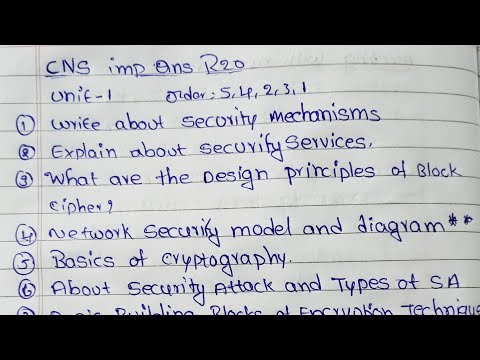 CNS imp Qns R20
Unit-1 Order: 5,4,2,3,1
① Write about security mechanisms
② Explain about security services.
③ What are the Design principles of Block
cipher,
④ Network Security model and diagram**
⑤ Basics of cryptography.
⑥ About Security Attack and Types of SA
Building Blocks of Encryption Technique